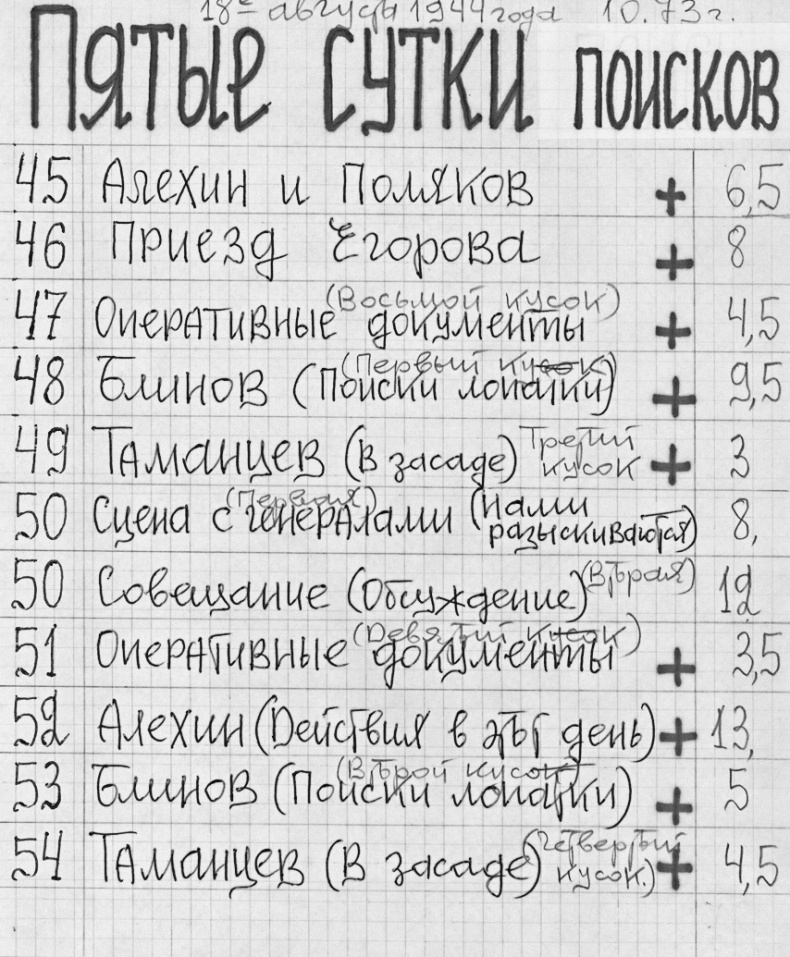 18го августа 1944 года 10.73 г.
Пятые сутки поисков
45 Алехин и Поляков + 6,5
46 Приезд Егорова + 8
(Восьмой кусок)
47 Оперативные документы + 4,5
(Первый кусок)
48 Блинов (Поиски лопатки) + 9,5
49 Таманцев (В засаде) Третий кусок + 3
(Первая)
50 Сцена с генералами (Нами разыскиваются) 8,
50 Совещание (Обсуждение) (Вторая) 12
(Девятый кусок)
51 Оперативные документы + 3,5
52 Алехин (Действия в этот день) + 13,
(Второй кусок)
53 Блинов (Поиски лопатки) + 5
54 Таманцев (В засаде) (Четвертый кусок.) + 4,5